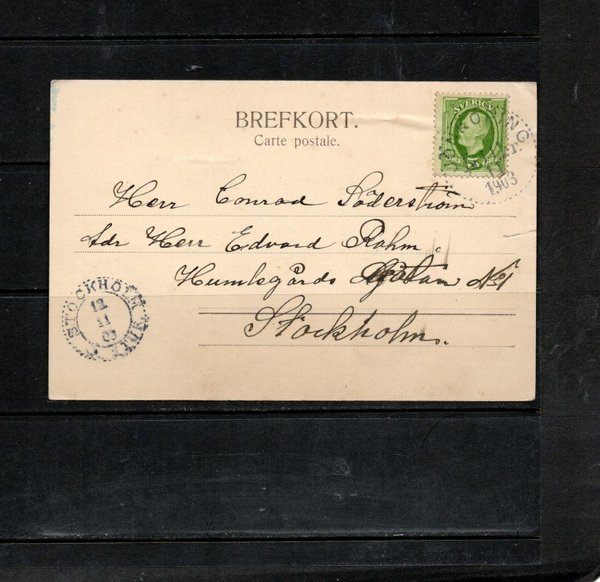 BREFKORT.
Carte postale.
SVERIGE
1903
Herr Conrad Söderström
Adr Herr Edvard Rahm.
Humlegårds Gatan No 1
Stockholm.
STOCKHOLM
12
11